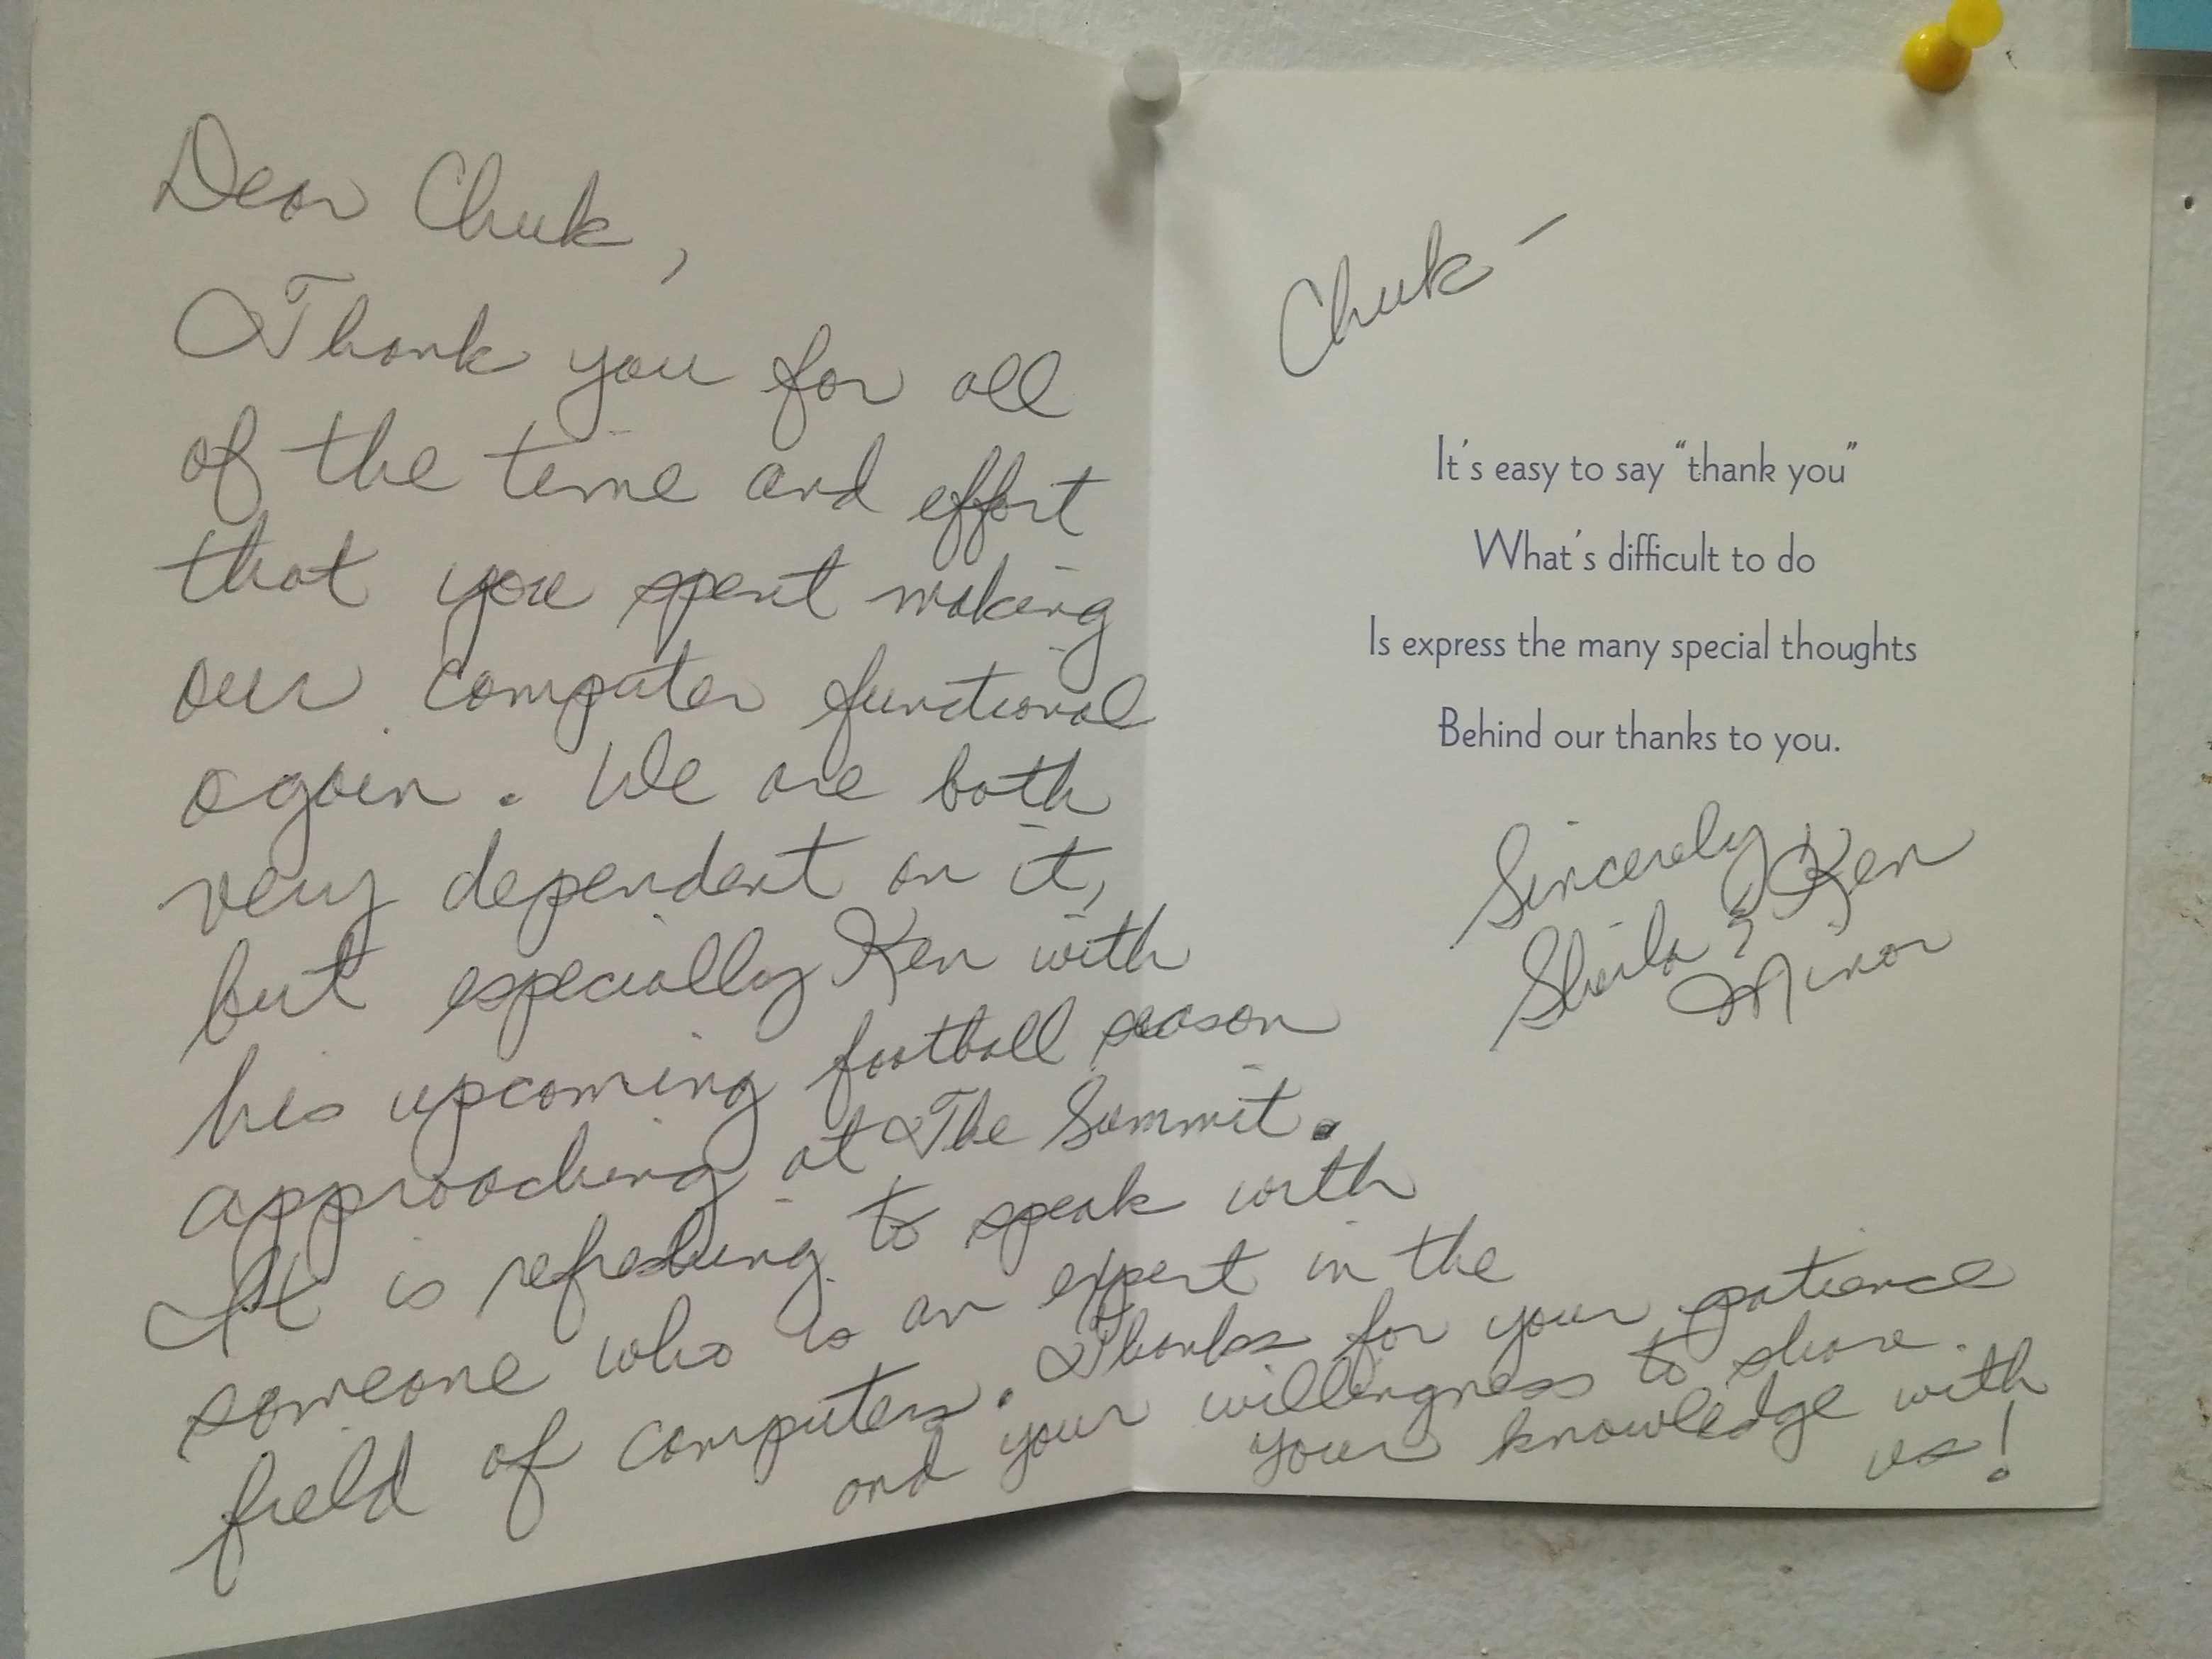 Dear Chuk,
Thank you for all
of the time and effort
that you spent making
our computer functional
again. We are both
very dependent on it,
but especially Ken with
his upcoming football season
approaching at The Summit.
It is refreshing to speak with
someone who is an expert in the
field of computers. Thanks for your patience
and your willingness to share
your knowledge with
us!
Chuk –
It's easy to say "thank you"
What's difficult to do
Is express the many special thoughts
Behind our thanks to you.
Sincerely
Sheila & Ken
Minor